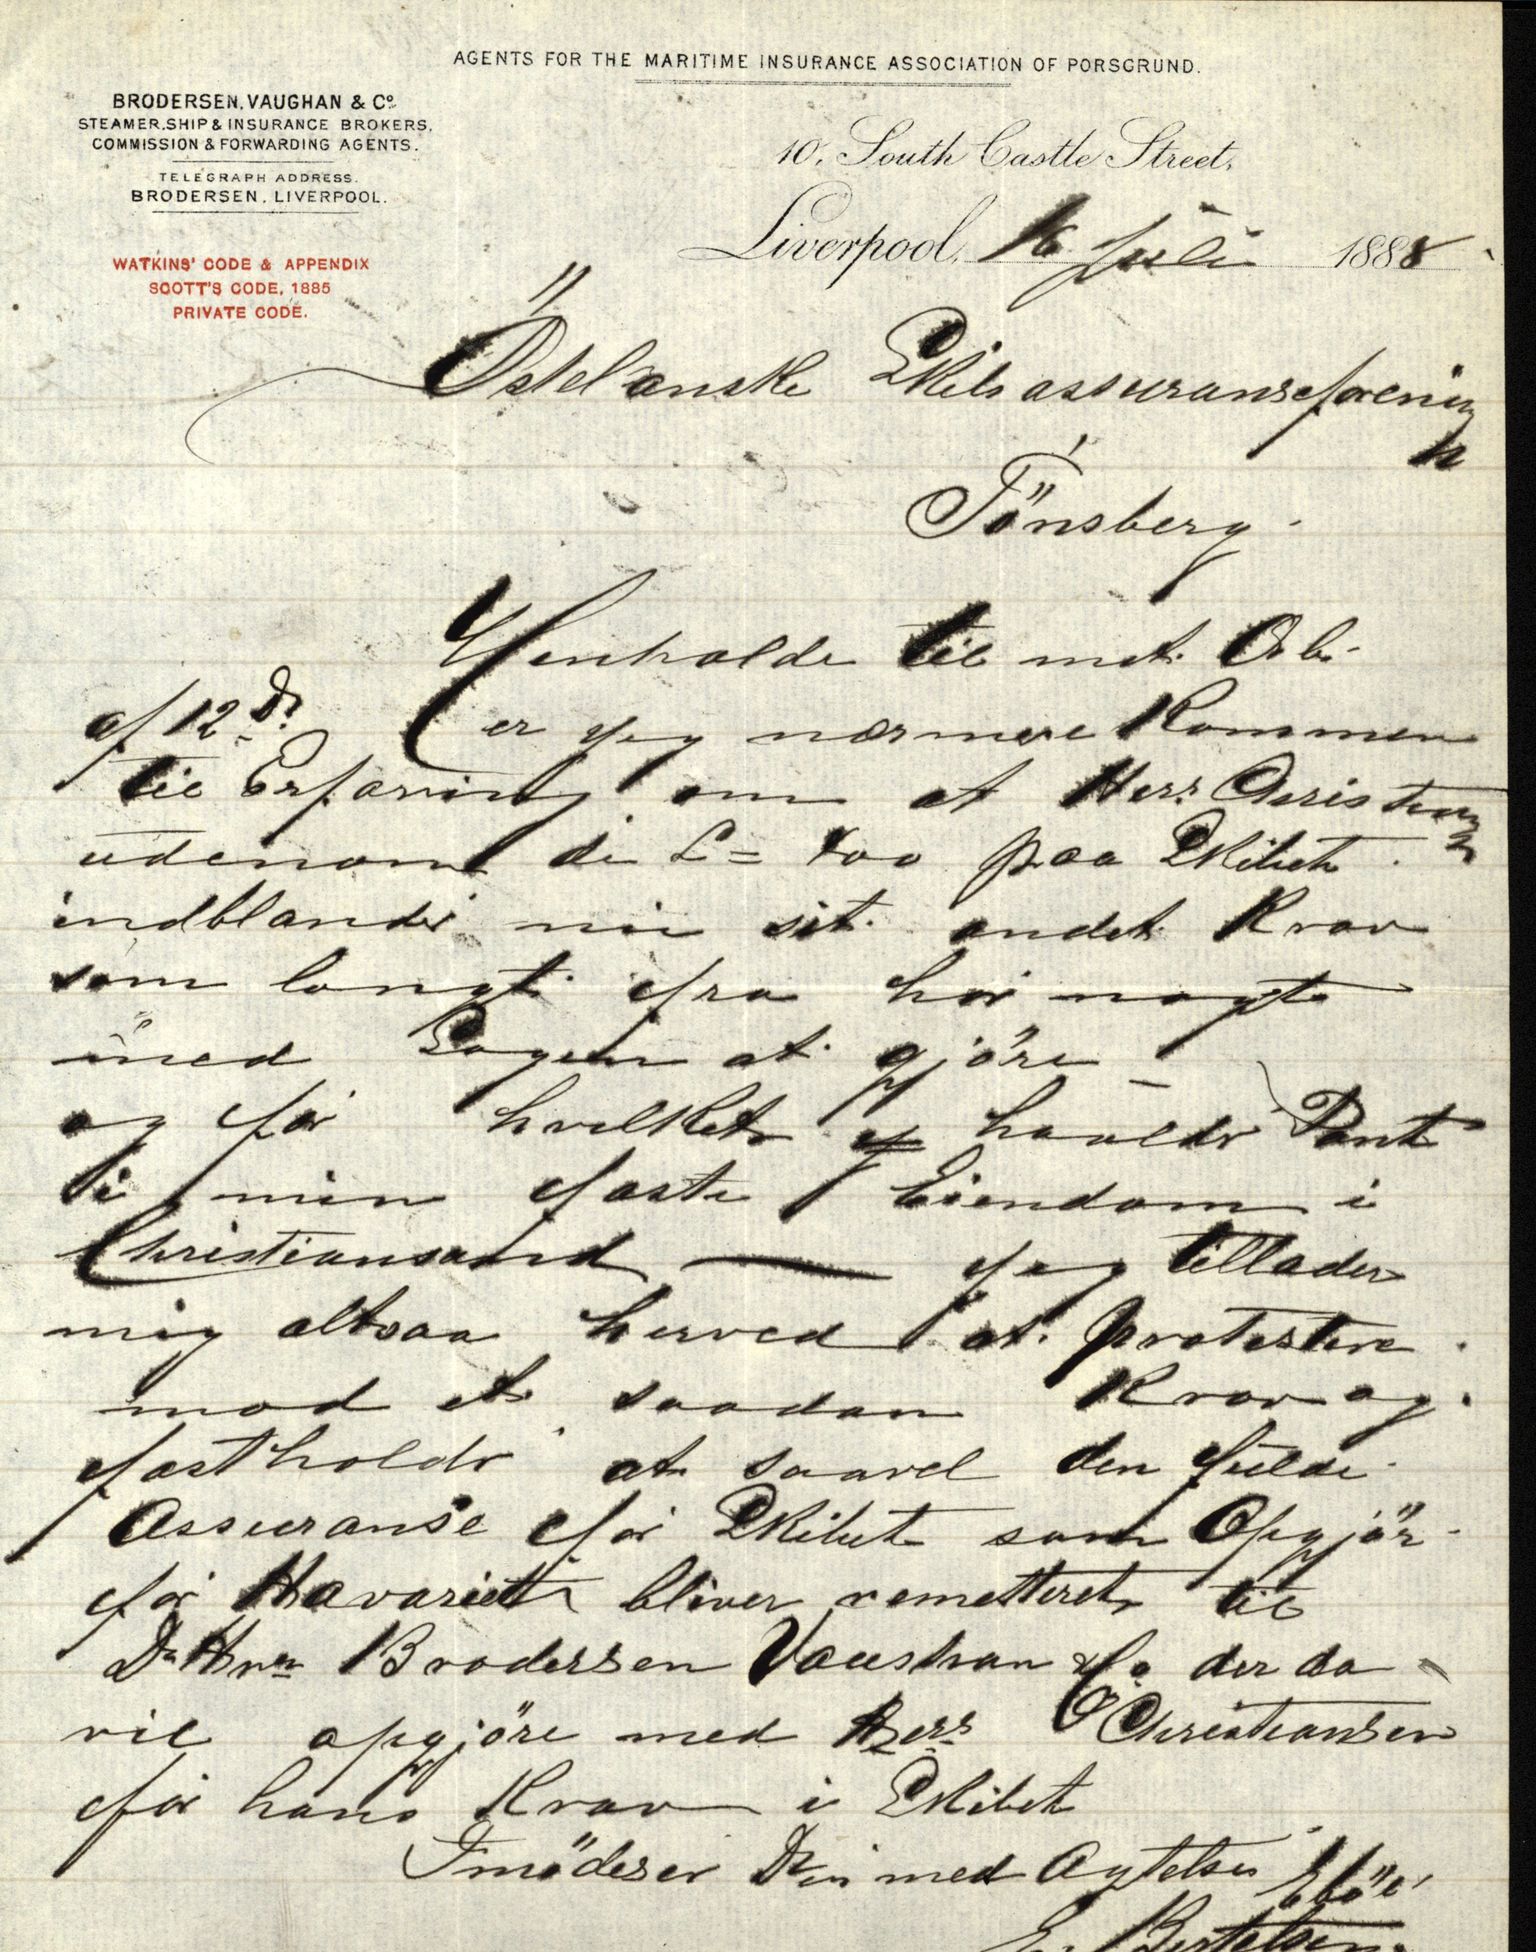 AGENTS FOR THE MARITIME INSURANCE ASSOCIATION OF PORSGRUND.
BRODERSEN, VAUGHAN & Co.
STEAMER, SHIP & INSURANCE BROKERS,
COMMISSION & FORWARDING AGENTS.
TELEGRAPH ADDRESS.
BRODERSEN, LIVERPOOL.
WATKINS' CODE & APPENDIX
SCOTT'S CODE, 1885
PRIVATE CODE.
10, South Castle Street,
Liverpool, 16 Juli 1888
Östelanske Skibsassuranseforening
Tönsberg.
Henholde til mit
af 12 Ds. er jeg nærmere Kommen
til Erfaring om at Herr Christiansen
udenom de £ = 400 paa Skibet
indblander sit andet Krav
som langt fra har nogt
med Sagen at gjöre –
og for hvilket haalder Pant
i min faste Eiendom i
Christiansand — jeg tillader
mig altsaa herved at protestere
mod et saadan Krav og
fastholder at saavel den fulde
Assuranse for Skibet som Opgjör
for Havariet bliver remetteret til
D'Hrr Brodersen Vaughan & Co der da
vil opgjöre med Herr C Christiansen
for hans Krav i Skibet
med Agtelse
E. Bertelsen